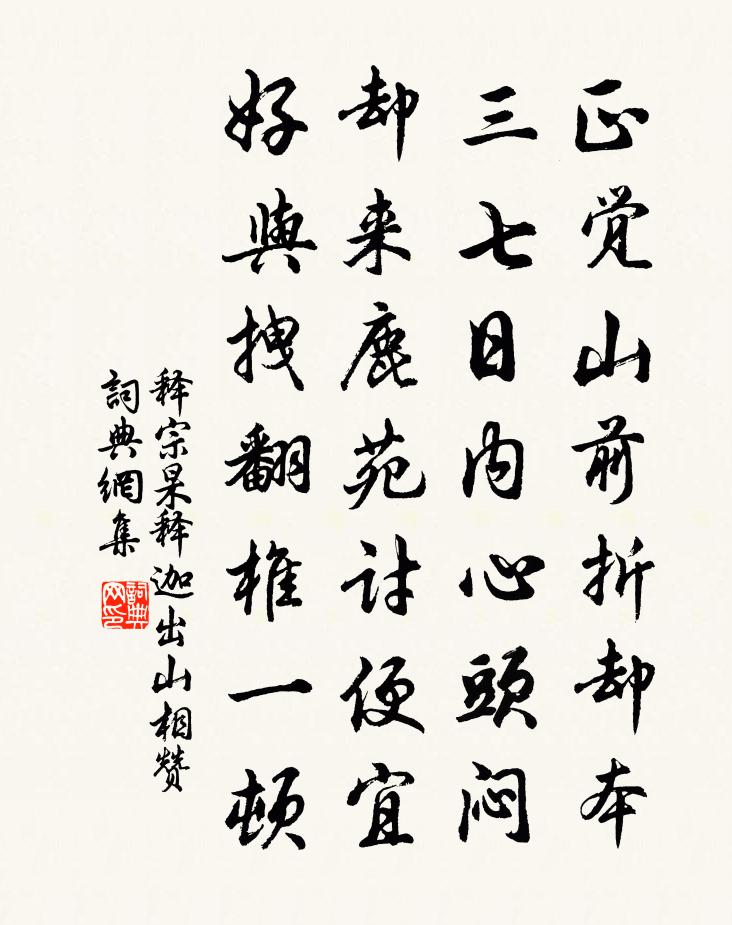 正覚山前折却本
三七日内心頭闷
却来鹿苑討便宜
好與搜翻椎一頓
释宗杲释迦出山相赞
詞典網集
詞典网印